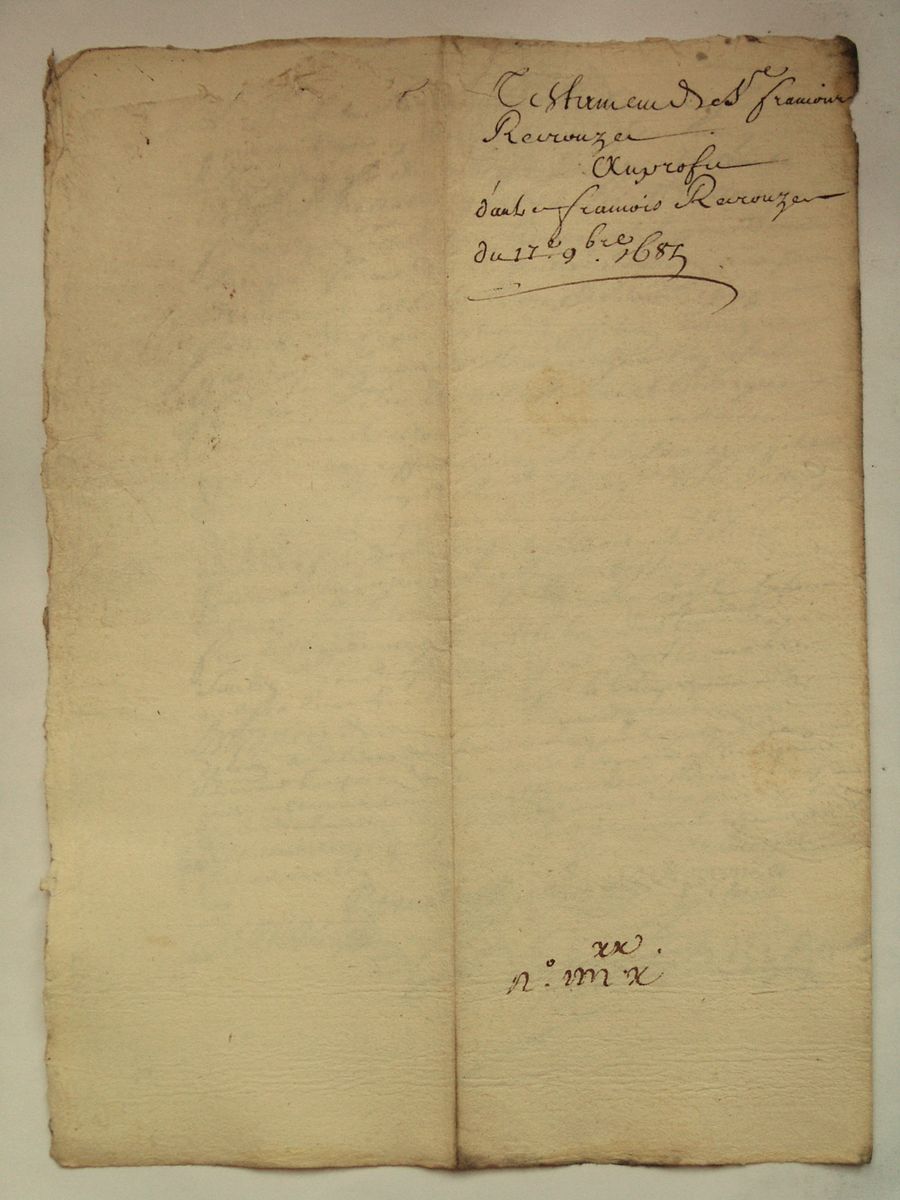 Testament de Sr francois
Revouze
Au profit
d'autre francois Revouze
du 17e. 9bre. 1685
xx
N°. IIII x